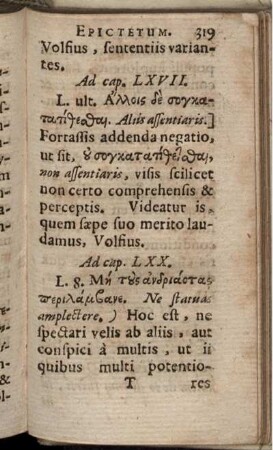 EPICTETUM. 319
Volfius, sententiis varian-
tes.
Ad cap. LXVII.
L. ult. Ἄλλοις δὲ συγκα-
τατίθεσθαι. Aliis assentiaris.]
Fortassis addenda negatio,
ut sit, οὐ συγκατατίθεσθαι,
non assentiaris, visis scilicet
non certo comprehensis &
perceptis. Videatur is,
quem sæpe suo merito lau-
damus, Volfius.
Ad cap. LXX.
L. 8. Μὴ τοὺς ἀνδριάντας
περιλάμβανε. Ne statuas
amplectere.) Hoc est, ne
spectari velis ab aliis, aut
conspici à multis, ut ii
quibus multi potentio-
T res